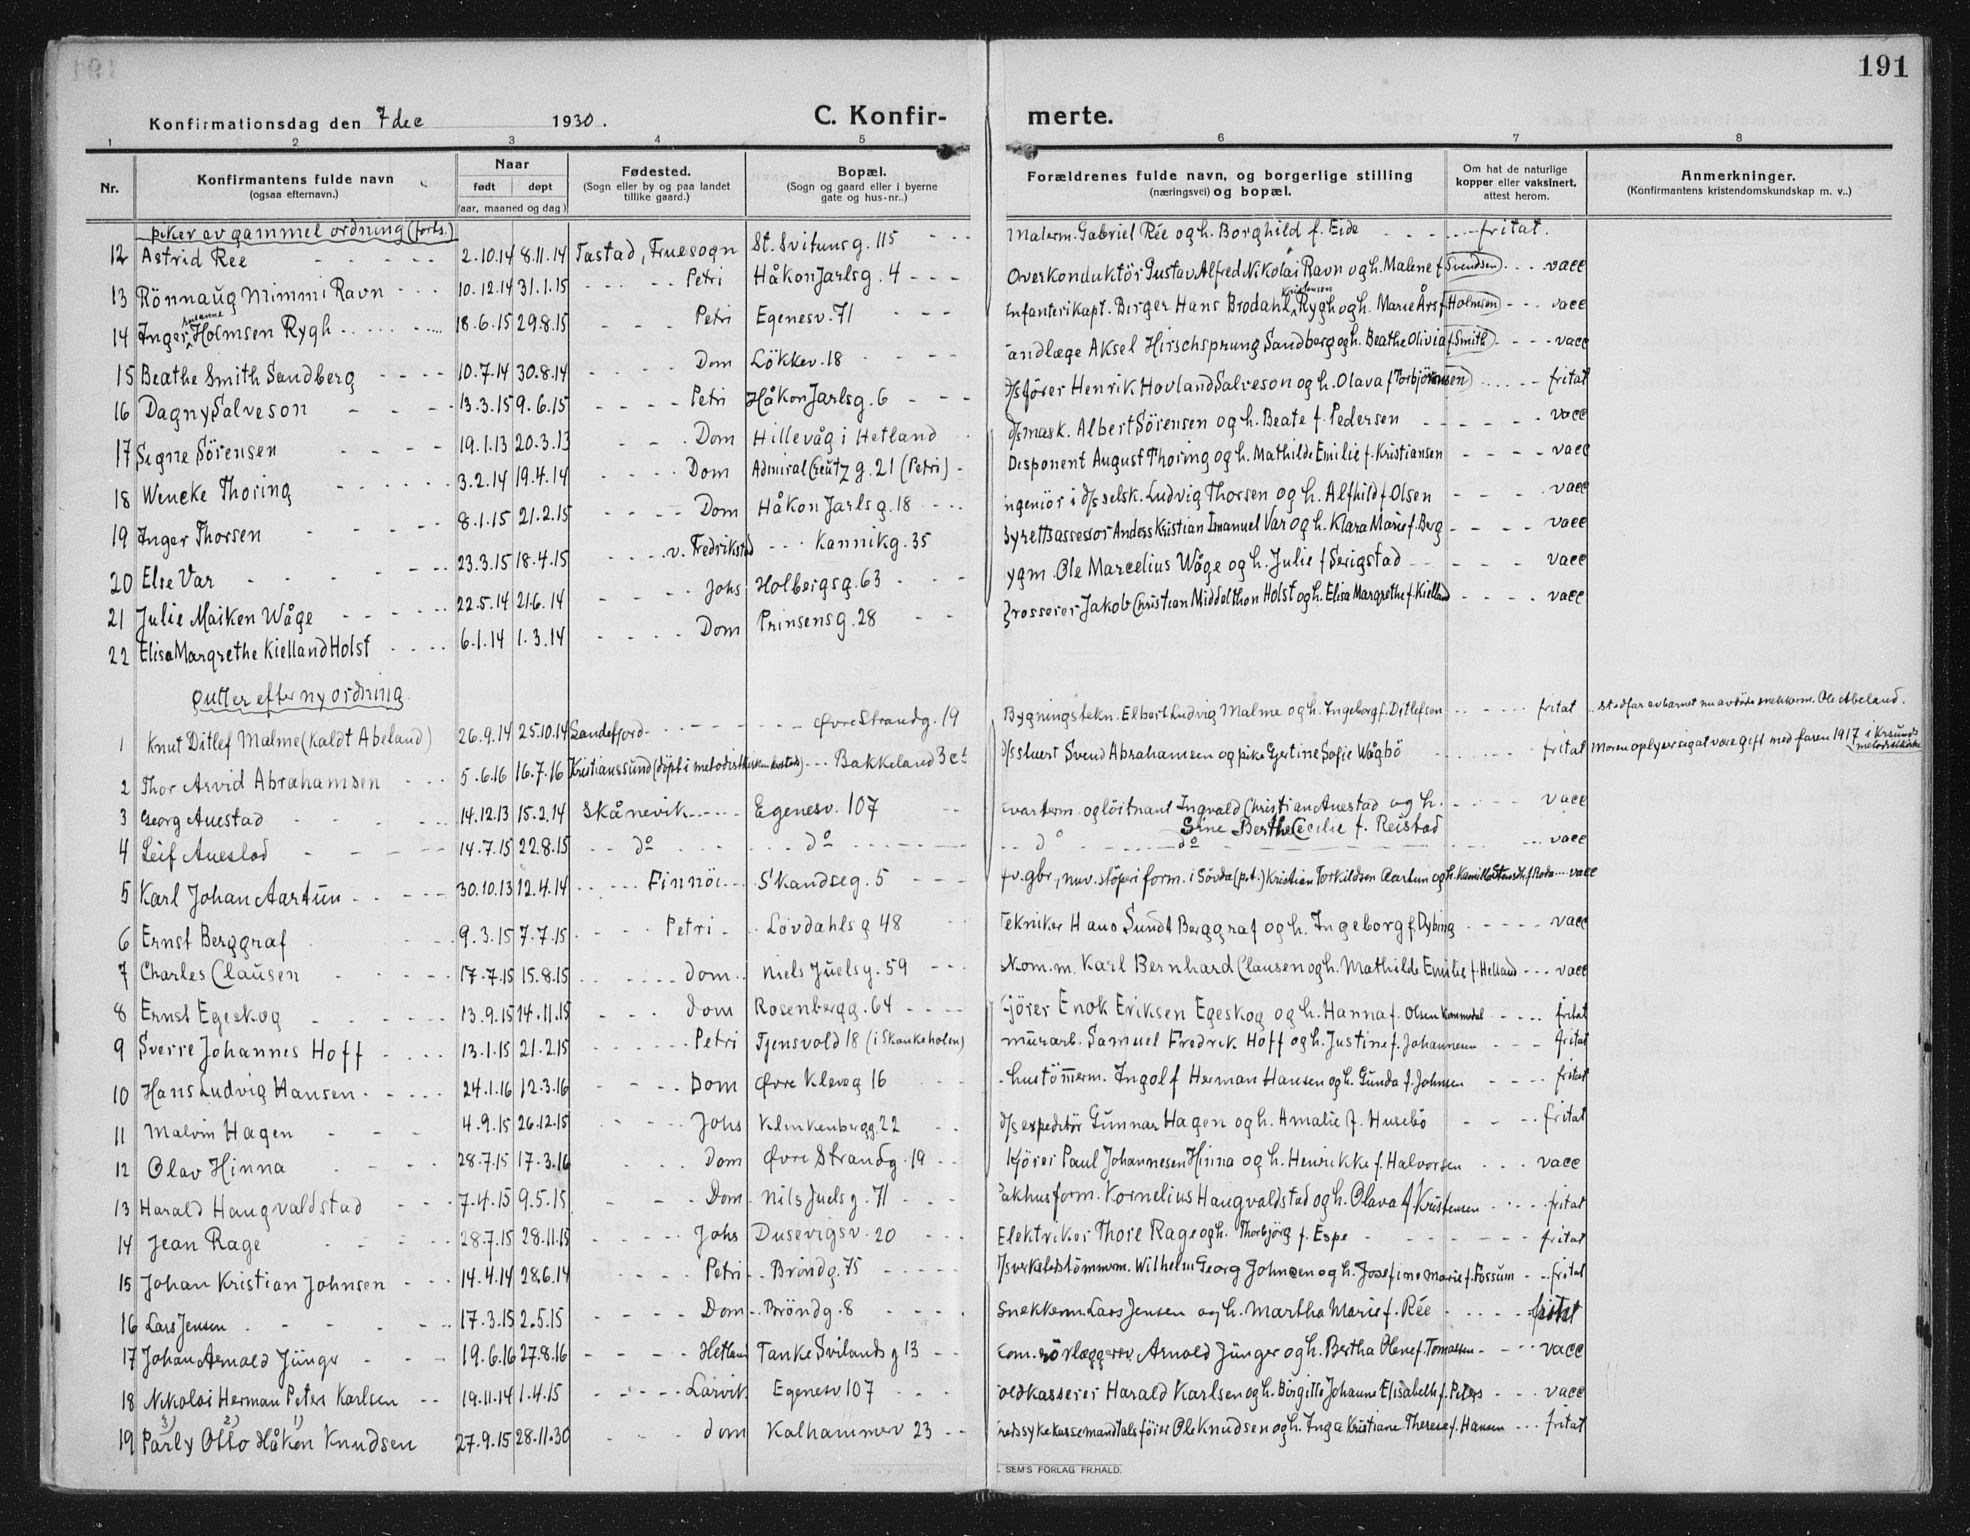 191
Konfirmationsdag den 7 dec 1930. C. Konfir- merte.
1 2 3 4 5 6 7 8
Nr. Konfirmantens fulde navn (ogsaa efternavn.) Naar født døpt (aar, maaned og dag) Fødested. (Sogn eller by og paa landet tillike gaard.) Bopæl. (Sogn og gaard eller i byerne gate og hus-nr..) Forældrenes fulde navn, og borgerlige stilling (næringsvei) og bopæl. Om hat de naturlige kopper eller vaksinert, attest herom. Anmerkninger. (Konfirmantens kristendomskundskap m. v..)
piker av gammel ordning (forts.)
12 Astrid Ree 2.10.14 8.11.14 Tastad, Fruesogn St. Svitunsg. 115 Malerm. Gabriel Rée og h. Borghild f. Eide fritat.
13 Rönnaug Mimmi Ravn 10.12.14 31.1.15 Petri Håkon Jarlsg. 4 Overkonduktör Gustav Alfred Nikolai Ravn og h. Malene f. Svendsen vacc
14 Inger Susanne Holmsen Rygh 18.6.15 29.8.15 Petri Egenesv. 71 Infanterikapt. Birger Hans Brodahl Kristensen Rygh og h. Marie Års f. Holmsen vacc
15 Beathe Smith Sandberg 10.7.14 30.8.14 Dom Lökkev. 18 andlæge Aksel Hirschsprung Sandberg og h. Beathe Olivia f. Smith vacc
16 Dagny Salveson 13.3.15 9.6.15 Petri Håkon Jarlsg. 6 d/s förer Henrik Hovland Salveson og h. Olava f. Torbjörnsen fritat
17 Signe Sörensen 19.1.13 20.3.13 Dom Hillevåg i Hetland d/s mask. Albert Sörensen og h. Beate f. Pedersen vacc
18 Wencke Thoring 3.2.14 19.4.14 Dom Admiral Creutz g. 21 (Petri) Disponent August Thoring og h. Mathilde Emilie f. Kristiansen vacc
19 Inger Thorsen 8.1.15 21.2.15 Dom Håkon Jarlsg. 18 ngeniör i d/s selsk. Ludvig Thorsen og h. Alfhild f. Olsen vacc
20 Else Var 23.3.15 18.4.15 v. Fredrikstad Kannikg. 35 Byrettsassessor Anders Kristian Imanuel Var og h. Klara Marie f. Berg vacc
21 Julie Maiken Wåge 22.5.14 21.6.14 Johs Holbergsg. 63 ygm. Ole Marcelius Wåge og h. Julie f. Serigstad vacc
22 Elisa Margrethe Kielland Holst 6.1.14 1.3.14 Dom Prinsensg. 28 Grosserer Jakob Christian Middelthon Holst og h. Elisa Margrethe f. Kielland vacc
Gutter efter ny ordning
1 Knut Ditlef Malme (kaldt Abeland) 26.9.14 25.10.14 Sandefjord Øvre Strandg. 19 Bygningstekn. Elbert Ludvig Malme og h. Ingeborg f. Ditlefsen fritat stedfar av barnet nu avdöde snekkerm. Ole Abeland.
2 Thor Arvid Abrahamsen 5.6.16 16.7.16 Kristianssund (döpt i metodistkirken krstad) Bakkeland 3 c d/s stuert Svend Abrahamsen og pike Gjertine Sofie Wågbö fritat Moren oplyser sig at være gift med faren 1917 i Krsunds metodistkirke
3 Georg Auestad 14.12.13 15.2.14 Skånevik Egenesv. 107 kvarterm. og löitnant Ingvald Christian Auestad og h. Sine Berthe Cecilie f. Reistad vacc
4 Leif Auestad 14.7.15 22.8.15 do do do do vacc
5 Karl Johan Aartun 30.10.13 12.4.14 Finnöi Skandseg. 5 fv. gbr., nuv. stöperiform. i Sövda (pt.) Kristian Torkildsen Aartun og h. Kamilla f. Roda vacc
6 Ernst Berggraf 9.3.15 7.7.15 Petri Lövdahlsg 48 Tekniker Hans Sundt Berggraf og h. Ingeborg f. Dybing vacc
7 Charles Clausen 17.7.15 15.8.15 dom Niels Juelsg. 59 Kom. m. Karl Bernhard Clausen og h. Mathilde Emilie f. Helland vacc
8 Ernst Egeskog 13.9.15 14.11.15 dom Rosenbergg. 64 Kjörer Enok Eriksen Egeskog og h. Hanna f. Olsen Kommedal fritat
9 Sverre Johannes Hoff 13.1.15 21.2.15 Petri Tjensvold 18 (i Skankeholen) murarb. Samuel Fredrik Hoff og h. Justine f. Johannesen fritat
10 Hans Ludvig Hansen 24.1.16 12.3.16 Dom Øvre Kleveg 16 hustömerm. Ingolf Herman Hansen og h. Gunda f. Johnsen fritat
11 Malvin Hagen 4.9.15 26.12.15 Johs Klinkenbergg. 22 d/s expeditör Gunnar Hagen og h. Amalie f. Husebö fritat
12 Olav Hinna 28.7.15 17.3.16 Dom Øvre Strandg. 19 Kjörer Paul Johannesen Hinna og h. Henrikke f. Halvorsen vacc
13 Harald Haugvaldstad 7.4.15 9.5.15 Dom Nils Juelsg. 71 Pakhusform. Kornelius Haugvaldstad og h. Olava f. Kristensen fritat
14 Jean Rage 28.7.15 28.11.15 Johs Dusevigsv. 20 Elektriker Thore Rage og h. Thorbjörg f. Espe fritat
15 Johan Kristian Johnsen 14.4.14 28.6.14 Petri Bröndg. 75 d/s verksted stömmerm. Wilhelm Georg Johnsen og h. Josefine Marie f. Fossum fritat
16 Lars Jensen 17.3.15 2.5.15 Dom Bröndg. 8 Snekkerm. Lars Jensen og h. Martha Marie f. Rée fritat
17 Johan Arnold Jünger 19.6.16 27.8.16 Hetland Tanke Svilandsg 13 kom. rörlæggerev. Arnold Jünger og h. Bertha Oline f. Tomassen vacc
18 Nikolai Herman Peters Karlsen 19.11.14 1.4.15 Larvik Egenesv 107 oldkasserer Harald Karlsen og h. Birgitte Johanne Elisabeth f. Peters vacc
19 Parly 3) Otto 2) Håkon 1) Knudsen 27.9.15 28.11.30 dom Kalhammerv 23 kretssykekassemandtalsförer Ole Knudsen og h. Inga Kristiane Therese f. Hansen fritat
SEM'S FORLAG FR.HALD.